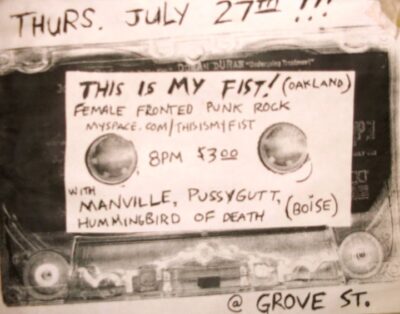 THURS. JULY 27TH !!!
DURAN DURAN "Undergoing Treatment"
THIS IS MY FIST! (OAKLAND)
FEMALE FRONTED PUNK ROCK
MYSPACE.COM/THISISMYFIST
8PM $3.00
WITH
MANVILLE, PUSSYGUTT,
HUMMINGBIRD OF DEATH (BOISE)
@ GROVE ST.